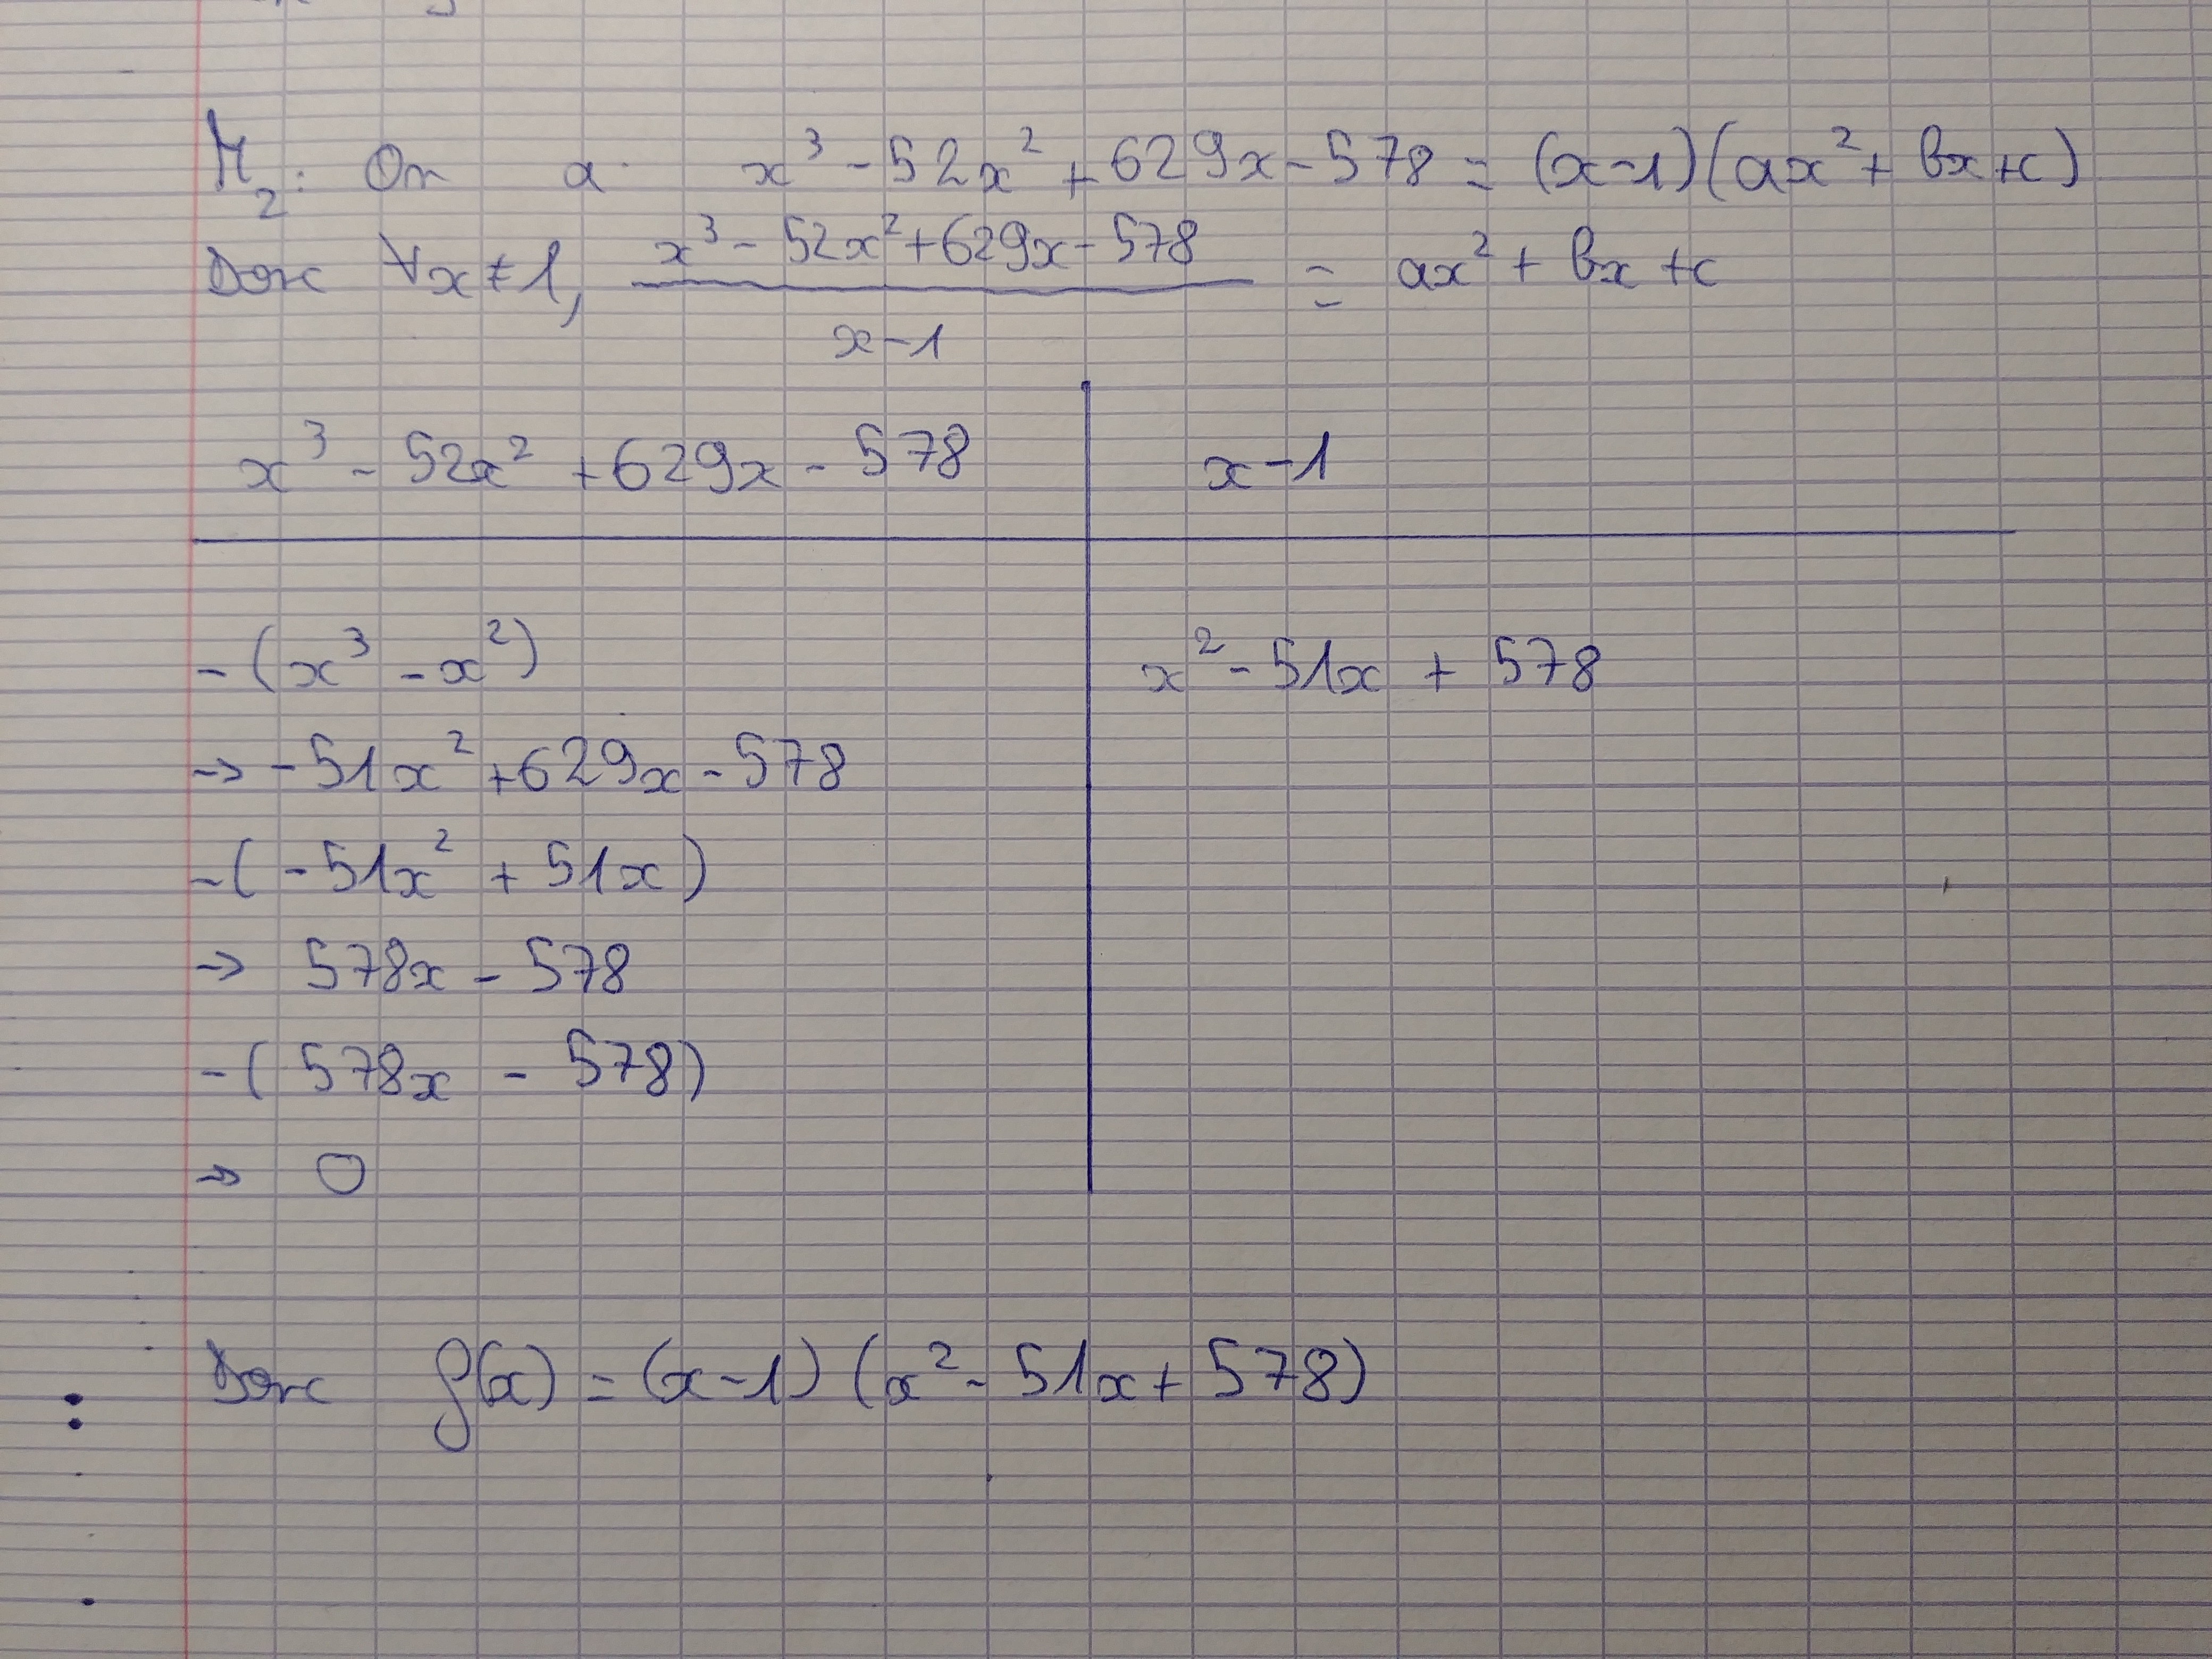 M₂: On a x³ - 52x² + 629x - 578 = (x-1)(ax² + bx + c)
Donc ∀x ≠ 1, (x³ - 52x² + 629x - 578)/(x-1) = ax² + bx + c
x³ - 52x² + 629x - 578 | x-1
-(x³ - x²) | x² - 51x + 578
→ -51x² + 629x - 578
-(-51x² + 51x)
→ 578x - 578
-(578x - 578)
→ 0
Donc f(x) = (x-1)(x² - 51x + 578)